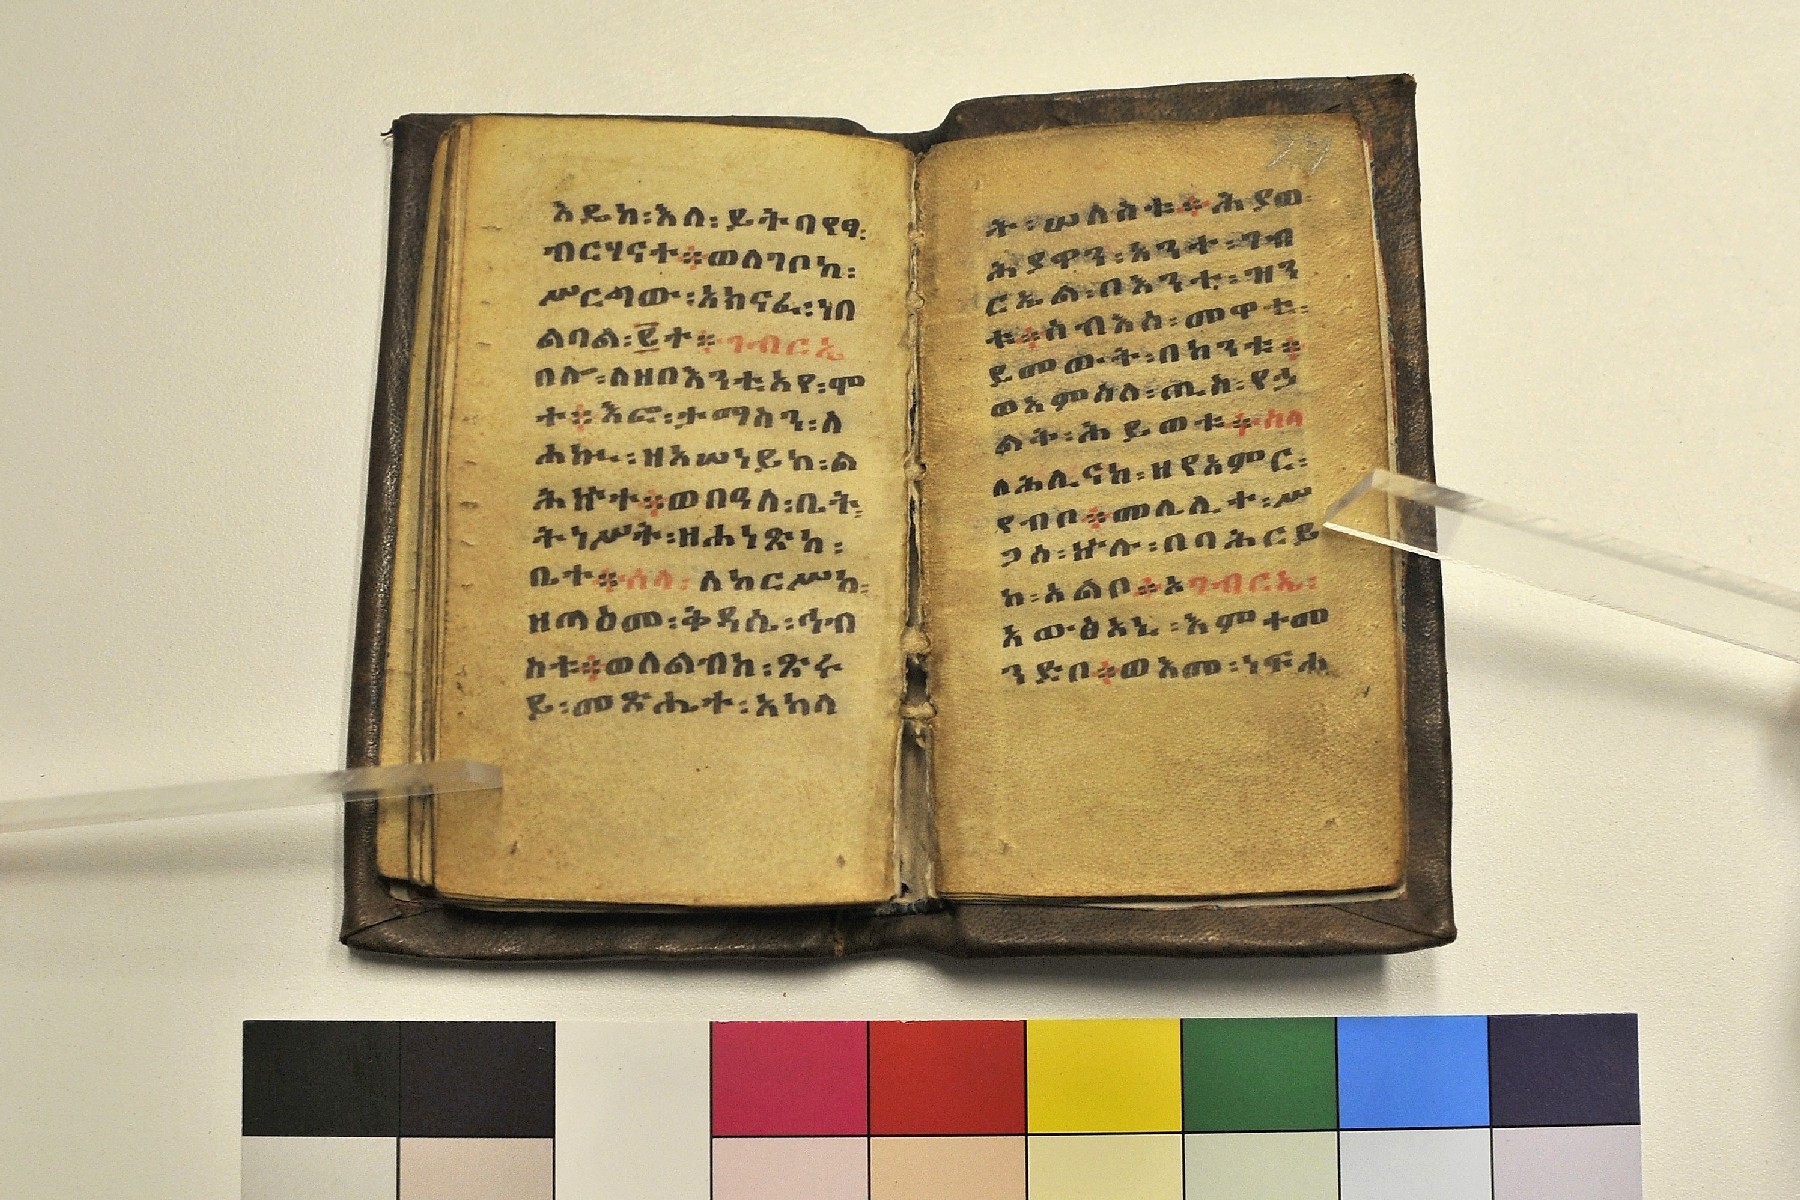 እዴከ፡እለ፡ይትባየፃ፡
ብርሃናተ፨ወለገቦከ፡
ሥርጣው፡አክናፈ፡ነበ
ልባል፡፸ተ፨ገብርኤ
በሎ፡ለዘበእንቲአየ፡ሞ
ተ፨እፎ፡ታማስን፡ለ
ሐክሉ፡ዘአሠነይከ፡ል
ሕኵተ፨ወበዓለ፡ቤት፡
ትነሥት፡ዘሐነጽከ፡
ቤተ፨ሰላ፡ለከርሥከ፡
ዘጣዕመ፡ቅዳሴ፡ኅብ
ስቱ፨ወለልብከ፡ጽሩ
ይ፡መጽሔተ፡አካላ
27
ት፡ሠለስቱ፨ሕያወ
ሕያዋን፡አንተ፡ገብ
ርኤል፡በእንቲ፡ዝን
ቱ፨ሰብእሰ፡መዋቲ፡
ይመውት፡በከንቱ፨
ወእምሰለ፡ጢስ፡የኃ
ልት፡ሕይወቱ፨ሰላ
ለሕሊናከ፡ዘየአምር፡
የብቦ፨መሊሊተ፡ሥ
ጋሰ፡ኵሉ፡በባሕርይ
ከ፡አልቦ፨አገብርኤ፡
አውፅአኒ፡እምተመ
ንድቦ፨ወእመ፡ነፍሐ